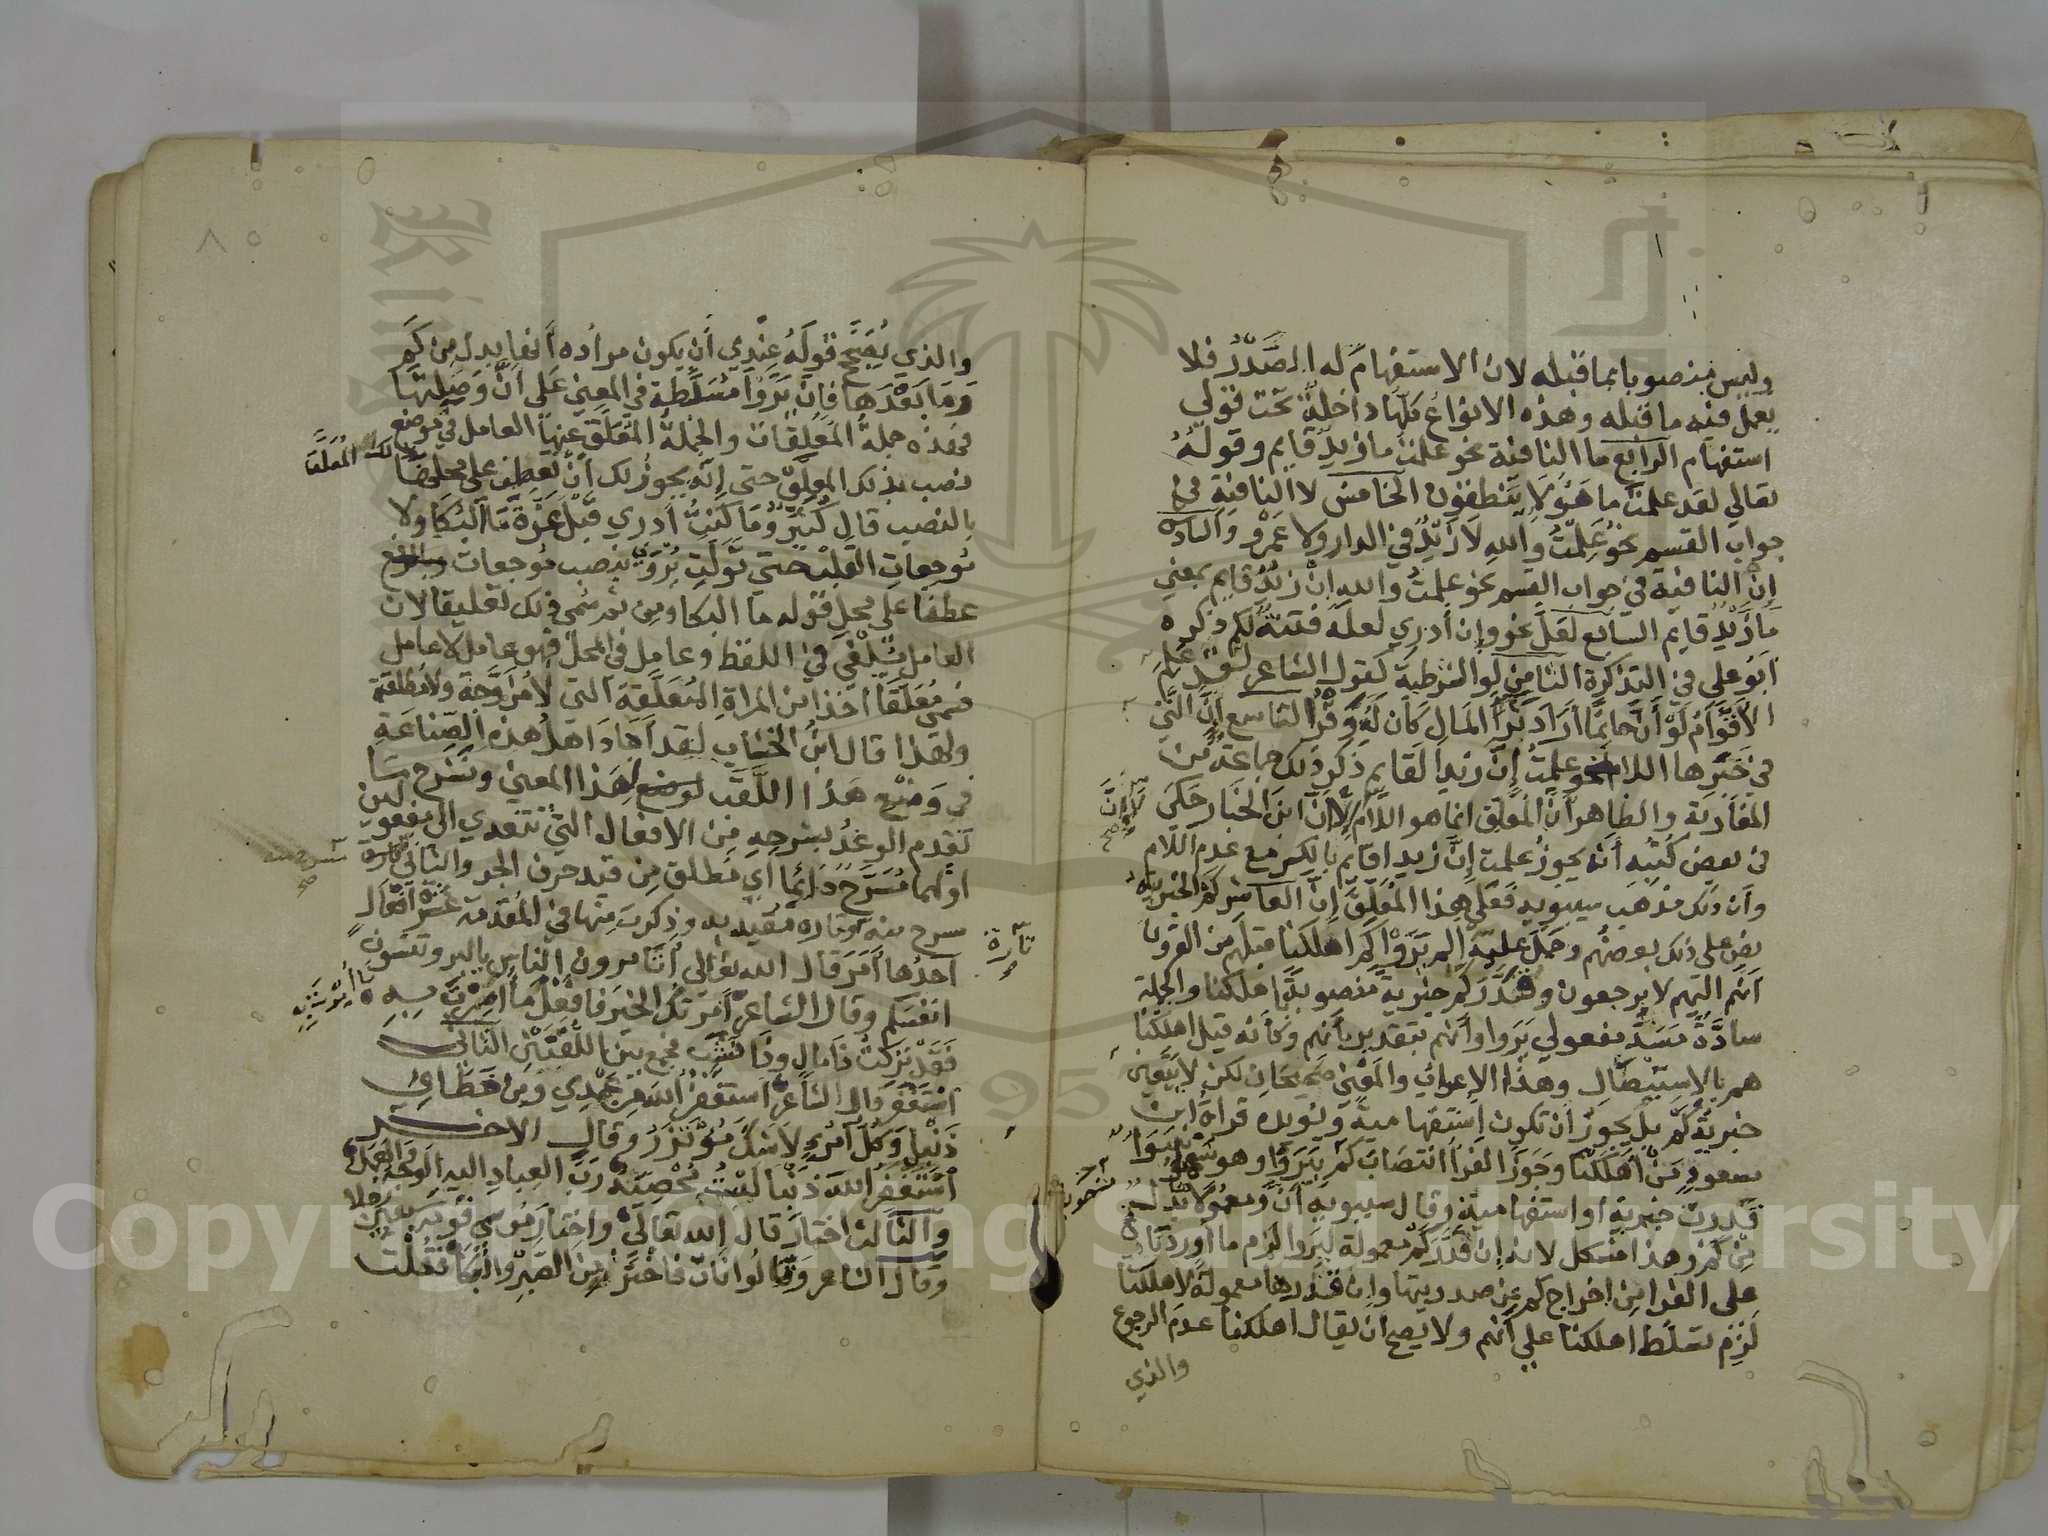 وليس بنصوبا بما قبله لان الاستفهام له الصدر فلا
يعمل فيه ما قبله وهذه الانواع كلها داخلة تحت قولي
استفهام الرابع ما النافية نحو علمت ما زيد قايم وقوله
تعالي لقد علمت ما هؤلا ينطقون الخامس لا النافية في
جواب القسم نحو علمت والله لا زيد في الدار ولا عمرو والسادس
إن النافية في جواب القسم نحو علمت والله إن زيد قايم بمعني
ما زيد قايم السابع لعل نحو وإن أدري لعله فتنة لكم ذكره
ابو علي في التذكرة الثامن لو الشرطية كقول الشاعر لقد علم
الاقوام لو أن حاتما أراد ثرا المال كان له وفر التاسع إن التي
في خبرها اللام نحو علمت إن زيدا لقايم ذكر ذلك جماعة من
المغاربة والظاهر أن المعلق انما هو اللام لا إن ابن الخباز حكي
في بعض كتبه أنه يجوز علمت إن زيدا قايم بالكسر مع عدم اللام
وأن ذلك مذهب سيبويه فعلي هذا المعلق إن العاشر كم الخبرية
نص علي ذلك بعضهم وحمل عليه الم يروا كم اهلكنا قبلهم من القرون
أنهم اليهم لا يرجعون وقدر كم خبرية منصوبة باهلكنا والجملة
سادة مسد مفعولي يروا وأنهم بتقدير بأنهم وكأنه قيل اهلكنا
هم بالاستيصال وهذا الاعراب والمعني صحيحان لكن لا يتعين
خبرية كم بل يجوز أن تكون استفهامية ويؤيده قراة ابن
مسعود من أهلكنا وجوز الفرا انتصاب كم بيروا وهو سهو سوا
قدرت خبرية او استفهامية وقال سيبويه أن ومعمولاها بدل
من كم وهذا مشكل لانه إن قدر كم معمولة ليروا لزم ما أوردناه
علي الفرا من اخراج كم عن صدريتها وإن قدرها معمولة لاهلكنا
لزم تسلط اهلكنا علي أنهم ولا يصح ان يقال اهلكنا عدم الرجوع
والذي
٨
والذي يصحح قوله عندي أن يكون مراده أنها بدل من كم
وما بعدها فإن يروا مسلطة في المعني علي أن وصلتها
فهذه جملة المعلقات والجملة المعلق عنها العامل في موضع
نصب بذلك المعلق حتي إنه يجوز لك أن تعطف علي محلها
بالنصب قال كثير وما كنت أدري قبل عزة ما البكا ولا
موجعات القلب حتي تولت يروي بنصب موجعات
عطفا علي محل قوله ما البكا ومن ثم سمي ذلك تعليقا لان
العامل ملغي في اللفظ وعامل في المحل فهو عامل لا عامل
فسمي معلقا اخذا من المراة المعلقة التي لا مزوجة ولا مطلقة
ولهذا قال ابن الخشاب لقد أجاد اهل هذه الصناعة
في وضع هذا اللقب لهذا المعني ونشرح ما
تقدم الوعد بشرحه من الافعال التي تتعدي الي مفعولين
اولهما مسرح دائما أي مطلق من قيد حرف الجر والثاني تارة
مسرح منه وتاره مقيد به وذكرت منها في المقدمة عشرة افعال
أحدها أمر قال الله تعالي أتامرون الناس بالبر وتنسون
انفسكم وقال الشاعر أمرتك الخير فافعل ما أمرت به
فقد تركتك ذا مال وذا نشب فجمع بين اللغتين الثاني
استغفر قال الشاعر استغفر الله من عمدي ومن خطاي
ذنبي وكل امرئ لا شك مؤتزر وقال الاخر
استغفر الله ذنبا لست محصيه رب العباد اليه الوجه والعمل
والثالث اختار قال الله تعالي واختار موسي قومه سبعين رجلا
وقال الشاعر وقالوا نأت فاختر من الصبر والبكا فقلت